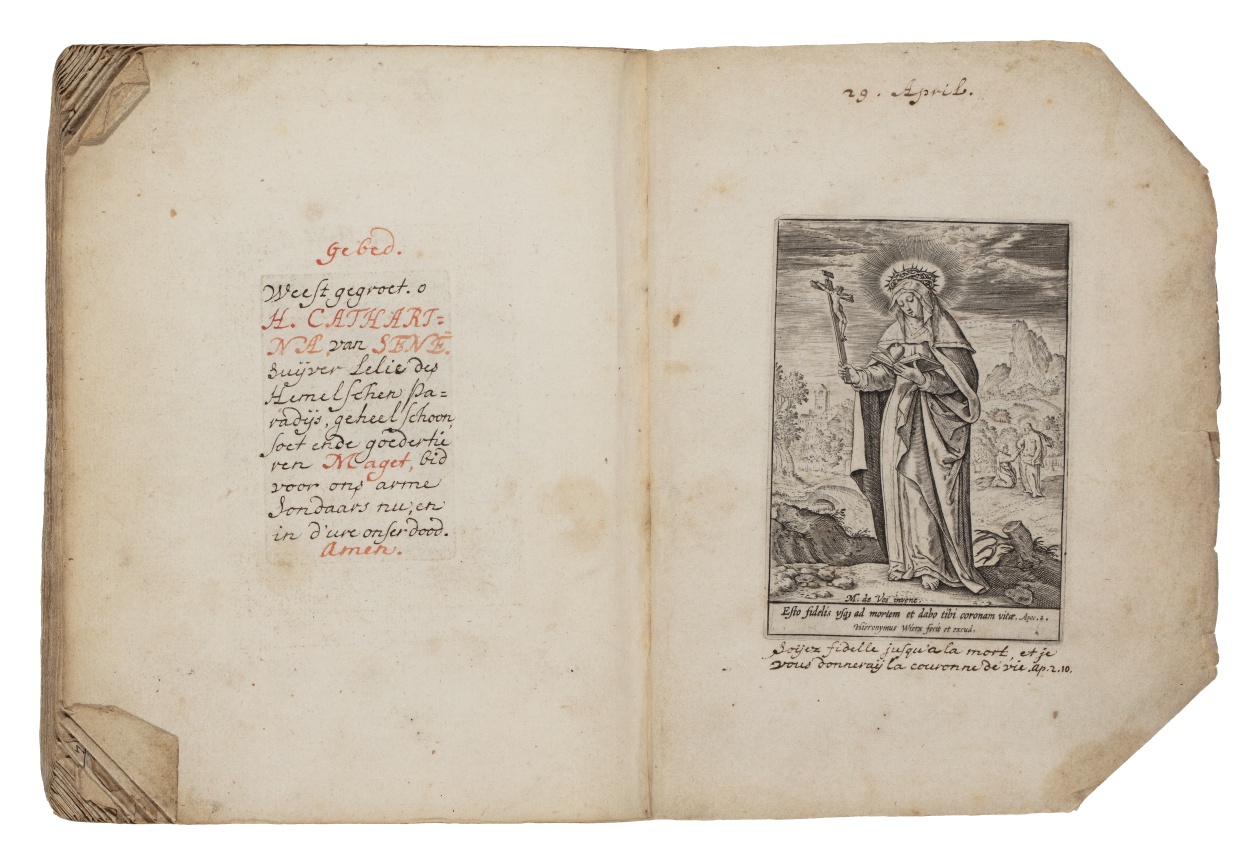 gebed.
Weest gegroet. o
H. CATHARI=
NÆ van SENĒ.
Suijver Lelie des
Hemelschen Pa=
radijs, geheel schoon,
soet ende goedertie
ren Maget, bid
voor ons arme
Sondaars nu, en
in d'ure onser dood.
Amen.
29. April.
M. de Vos invent.
Esto fidelis usq; ad mortem et dabo tibi coronam vitæ. Apoc. 2.
Hieronymus Wierx fecit et excud.
Soijez fidelle jusqu'a la mort, et je
vous donneraij la couronne de vie. Ap. 2. 10.